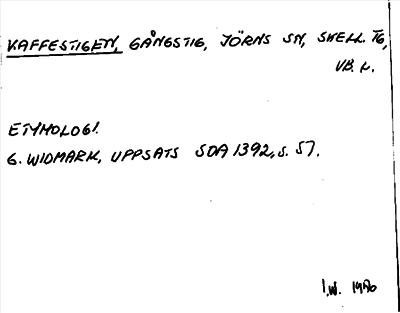 KAFFESTIGEN, GÅNGSTIG, JÖRNS SN, SKELL. TG,
VB. L.
ETYMOLOGI.
G. WIDMARK, UPPSATS SOA 1392, S. 57.
I.W. 1980